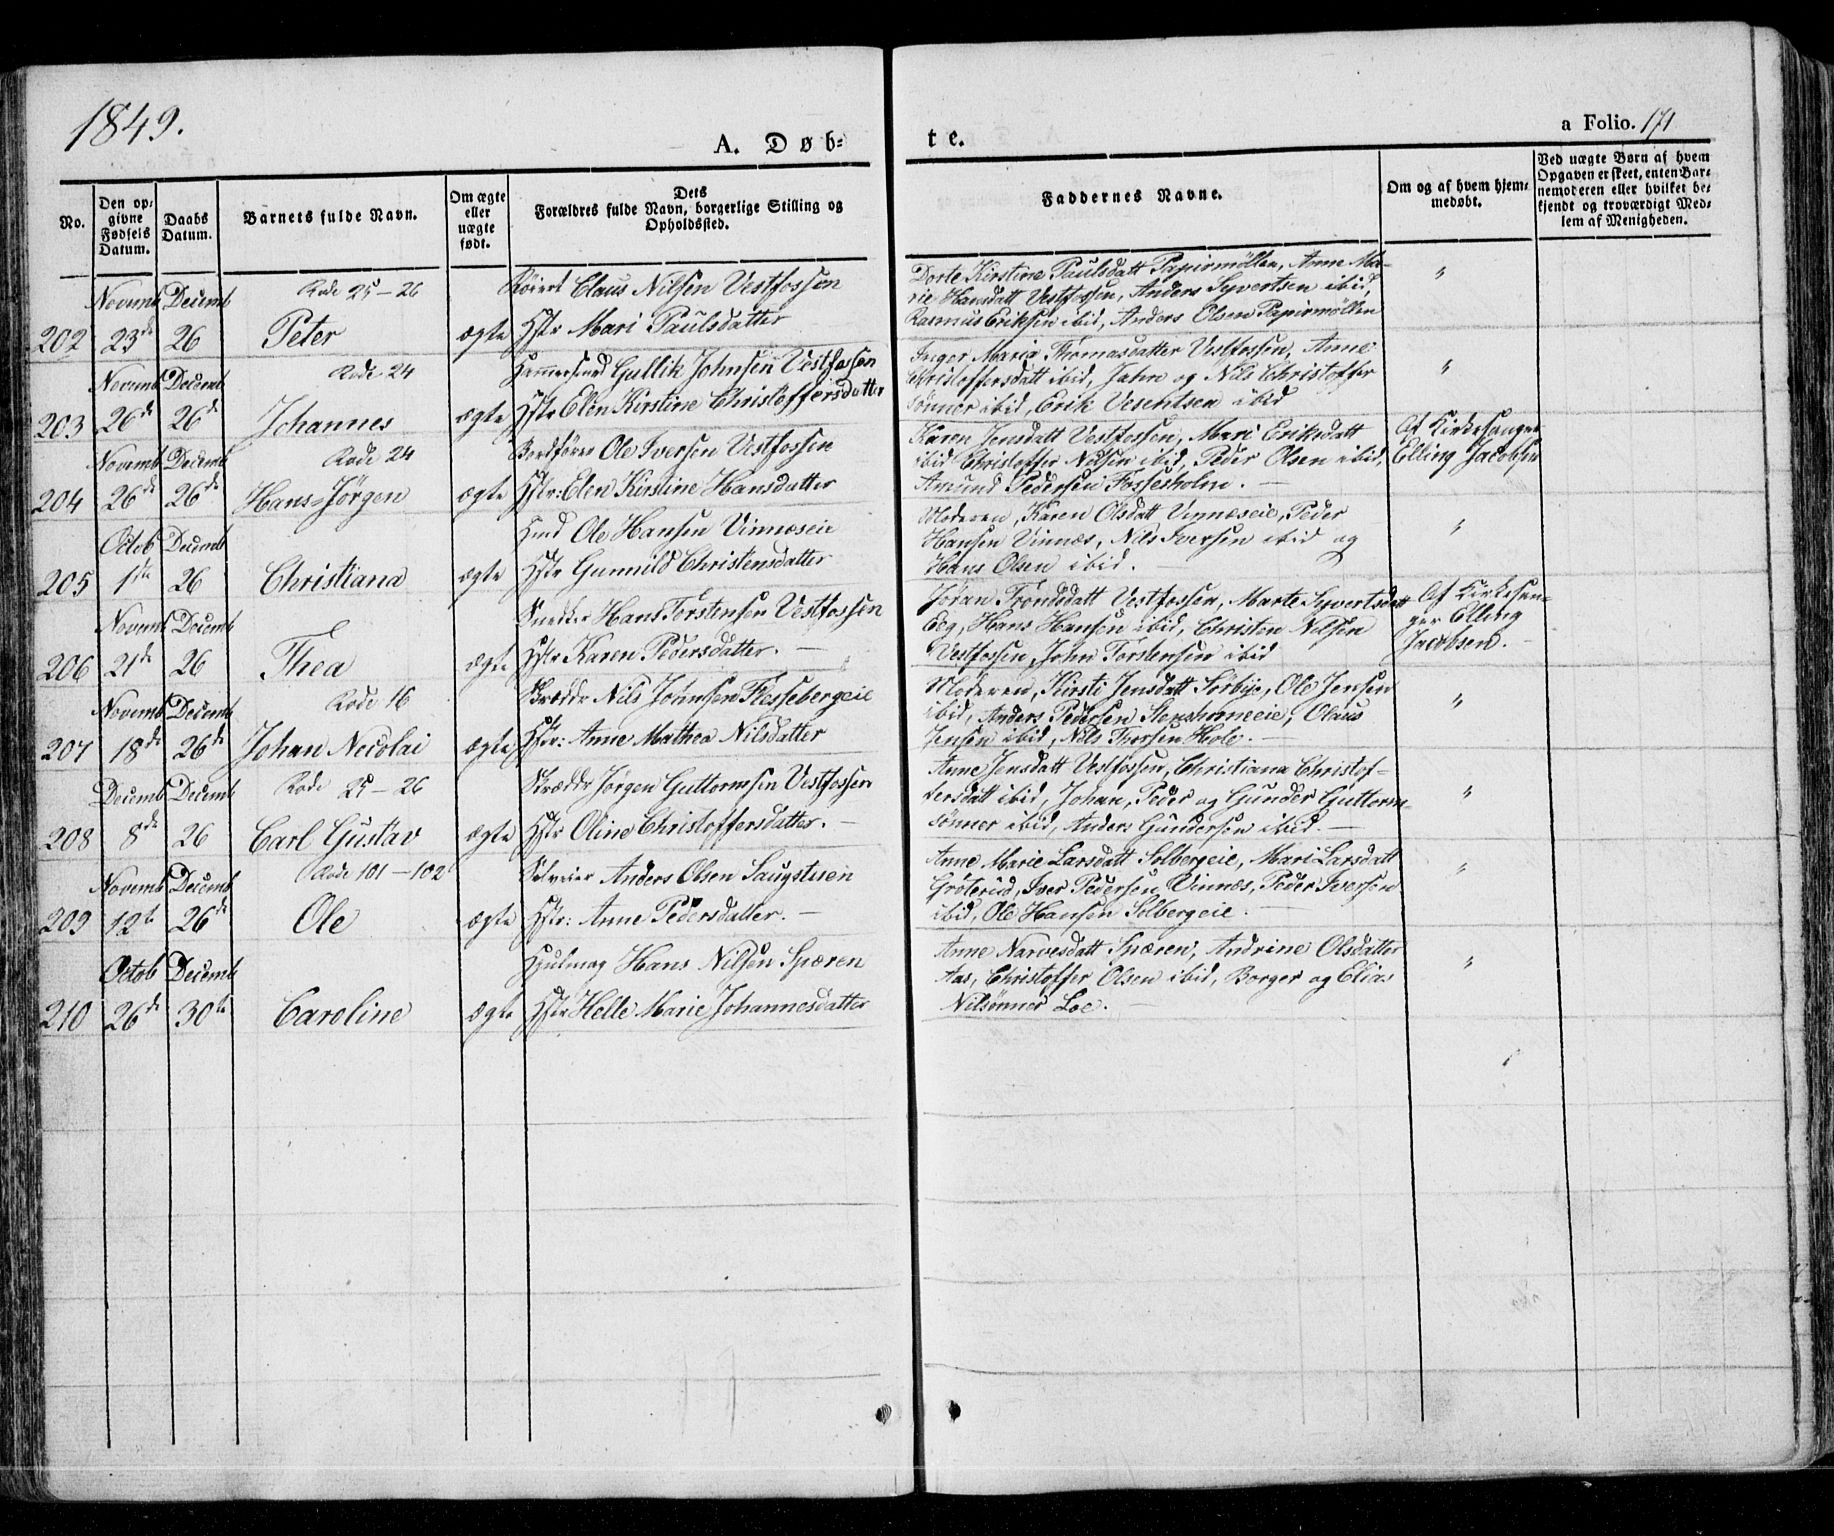 1849.
A. Døb-
te.
a Folio. 171
No.
Den op-
givne
Fødsels
Datum.
Daabs
Datum.
Barnets fulde Navn.
Om ægte
eller
uægte
født.
Dets
Forældres fulde Navn, borgerlige Stilling og
Opholdssted.
Faddernes Navne.
Om og af hvem hjem-
medøbt.
Ved uægte Børn af hvem
Opgaven er skeet, enten Bar-
nemoderen eller hvilket be-
kjendt og troværdigt Med-
lem af Menigheden.
Novemb Decemb Rode 25-26 Claus Nilsen Vestfossen
202 23de 26 Peter ægte Hstr Mari Paulsdatter
Dorte Kirstine Paulsdatt Papirmøllen, Anne Ma-
rie Hansdatt Vestfossen, Anders Syvertsen ibid,
Rasmus Eriksen ibid, Anders Olsen Papirmøllen
"
Novemb Decemb Rode 24 Gullik Johnsen Vestfossen
203 26de 26de Johannes ægte Hstr Elen Kirstine Christoffersdatter
Inger Maria Thomasdatter Vestfossen, Anne
Christoffersdatt ibid, og Nils Christoffer
sønner ibid, Erik ibid
"
Novemb Decemb Rode 24 Ole Iversen Vestfossen
204 26de 26de Hans-Jørgen ægte Hstr: Elen Kirstine Hansdatter
Karen Jensdatt Vestfossen, Mari Eriksdatt
ibid Christoffer Nilsen ibid, Peder Olsen ibid,
Amund Pedersen Fossesholm. —
Af Kirkesanger
Elling Jacobsen
Octob Decemb Hmd Ole Hansen Vinnæseie
205 1ste 26 Christiana ægte Hstr Gunnild Christensdatter
Moderen, Karen Olsdatt Vinnæseie, Peder
Hansen Vinnæs, Nils Iversen ibid og
Hans Olsen ibid. —
"
Novemb Decemb Snedker Hans Torstensen Vestfossen
206 21de 26 Thea ægte Hstr Karen Pedersdatter. —
Jøran Trondsdatt Vestfossen, Marte Syvertsdatt
Eeg, Hans Hansen ibid, Christen Nilsen
Vestfossen, John Torstensen ibid
Af Kirkesan-
ger Elling
Jacobsen.
Novemb Decemb Rode 16 Skrædder Nils Johnsen Flessebergeie
207 18de 26de Johan Nicolai ægte Hstr: Anne Mathea Nilsdatter
Moderen, Kirsti Jensdatt Sørbye, Ole Jensen
ibid, Anders Pedersen Stenshorneie, Olaus
Jensen ibid, Nils Thorsen Hole. —
"
Decemb Decemb Rode 25-26 Skrædder Jørgen Guttormsen Vestfossen
208 8de 26 Carl Gustav ægte Hstr Oline Christoffersdatter. —
Anne Jensdatt Vestfossen, Christiana Christof-
fersdatt ibid, Johan, Peder og Gunder Guttorm-
sønner ibid, Anders Gundersen ibid. —
"
Novemb Decemb Rode 101-102 Selveier Anders Olsen Saugstuen
209 12te 26de Ole ægte Hstr: Anne Pedersdatter. —
Anne Marie Larsdatt Solbergeie, Mari Larsdatt
Grøterud, Iver Pedersen Vinnæs, Peder Iversen
ibid, Ole Hansen Solbergeie.
"
Octob Decemb Hjulmag Hans Nilsen Spæren
210 26de 30te Caroline ægte Hstr Helle Marie Johannesdatter
Anne Narvesdatt Spæren, Andrine Olsdatter
Aas, Christoffer Olsen ibid, Borger og Elias
Nilsønner Loe. —
"